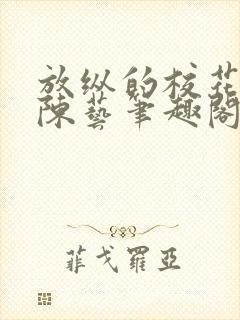 放纵的校花
陈艺笔趣阁
菲戈罗亚